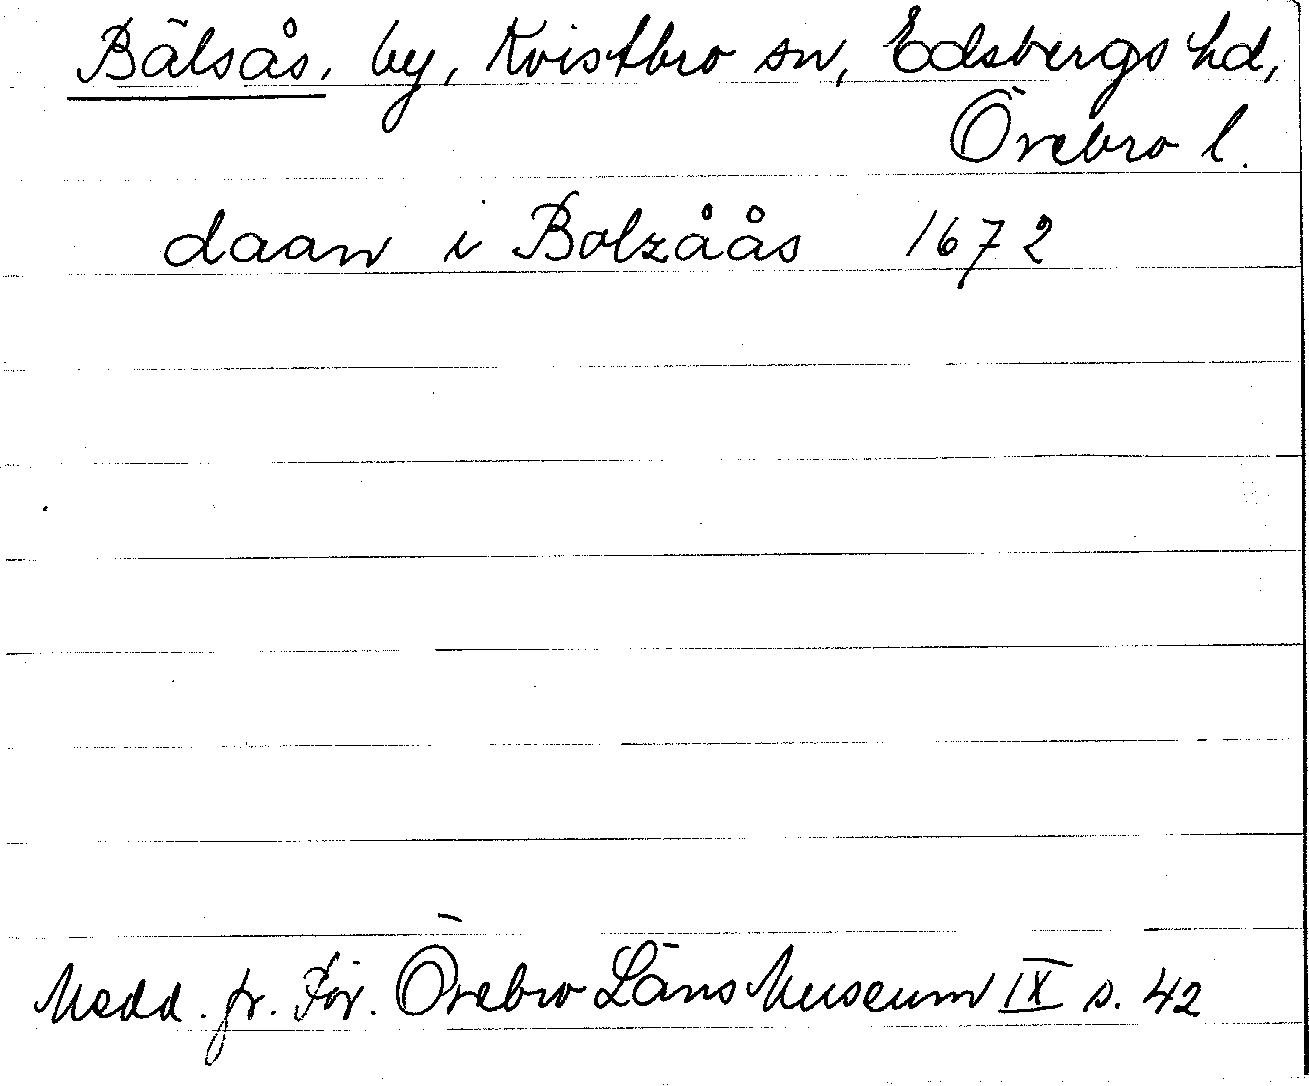 Bälsås, by, Kvistbro sn, Edsbergs hd,
Örebro l.
daan i Bolzåås 1672
Medd. fr. För. Örebro Läns Museum IX s. 42